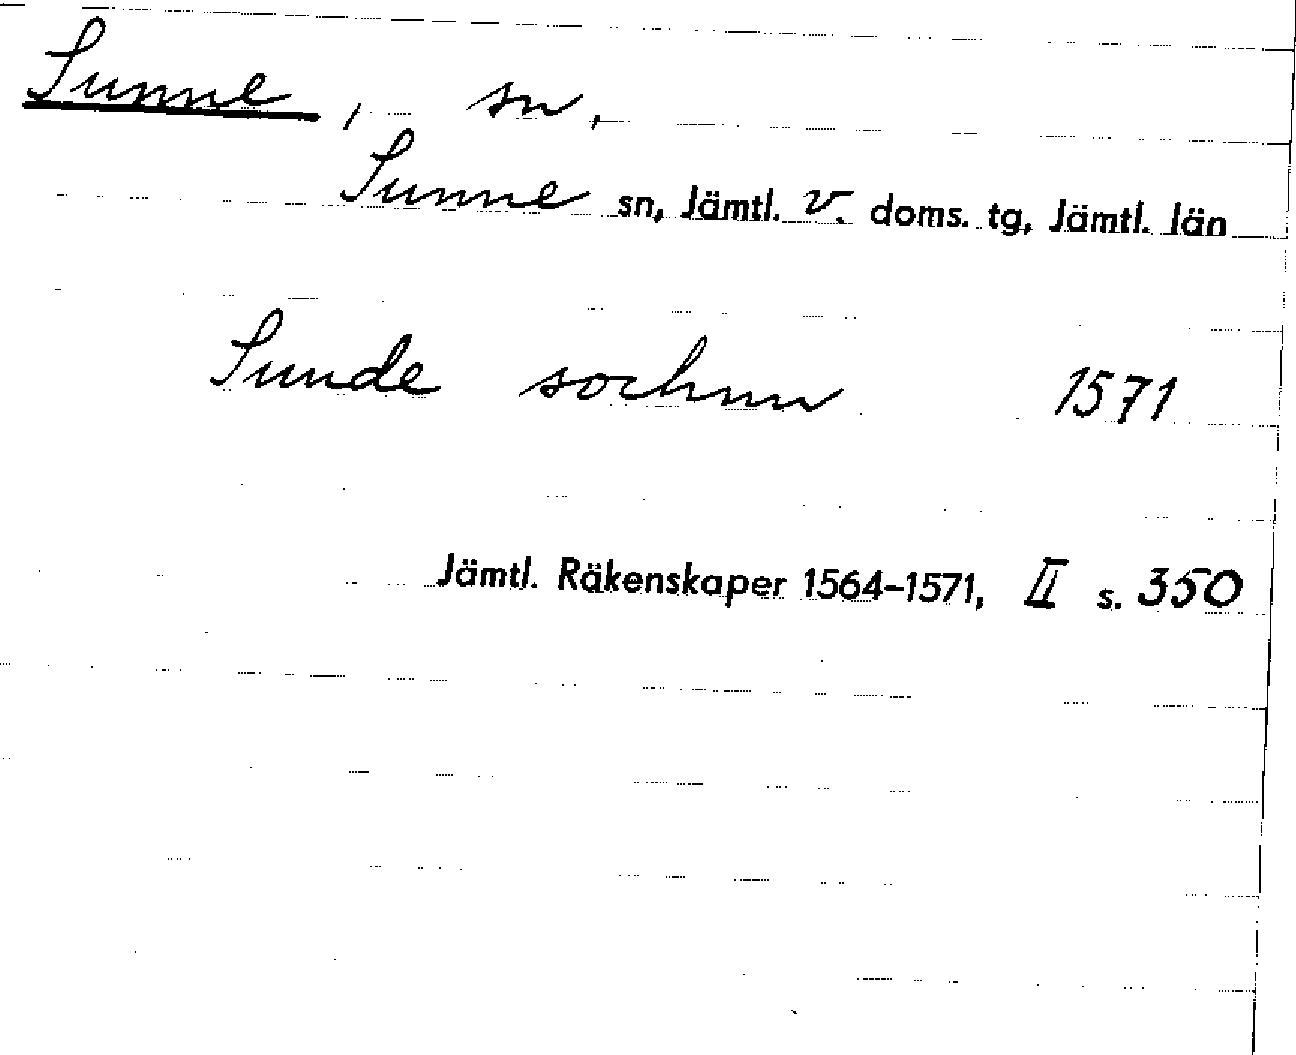 Sunne, sn,
Sunne sn, Jämtl. v. doms. tg, Jämtl. län
Sunde sochnn 1571
Jämtl. Räkenskaper 1564–1571, II s. 350